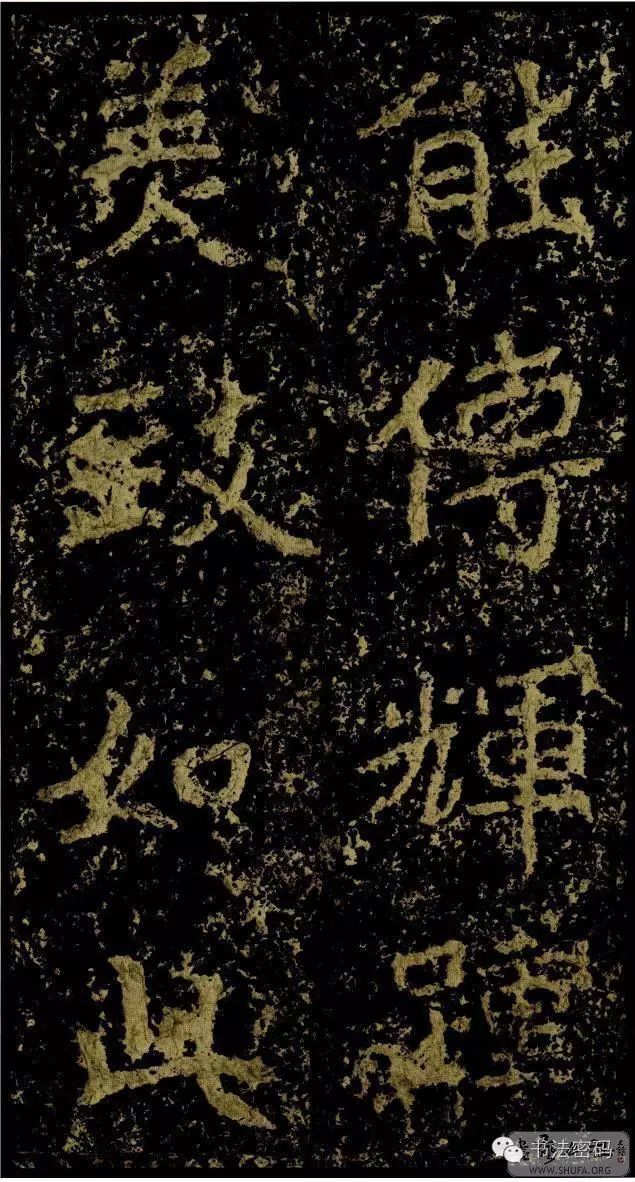 能傳輝踵
美致如此
书法密码
WWW.SHUFA.ORG